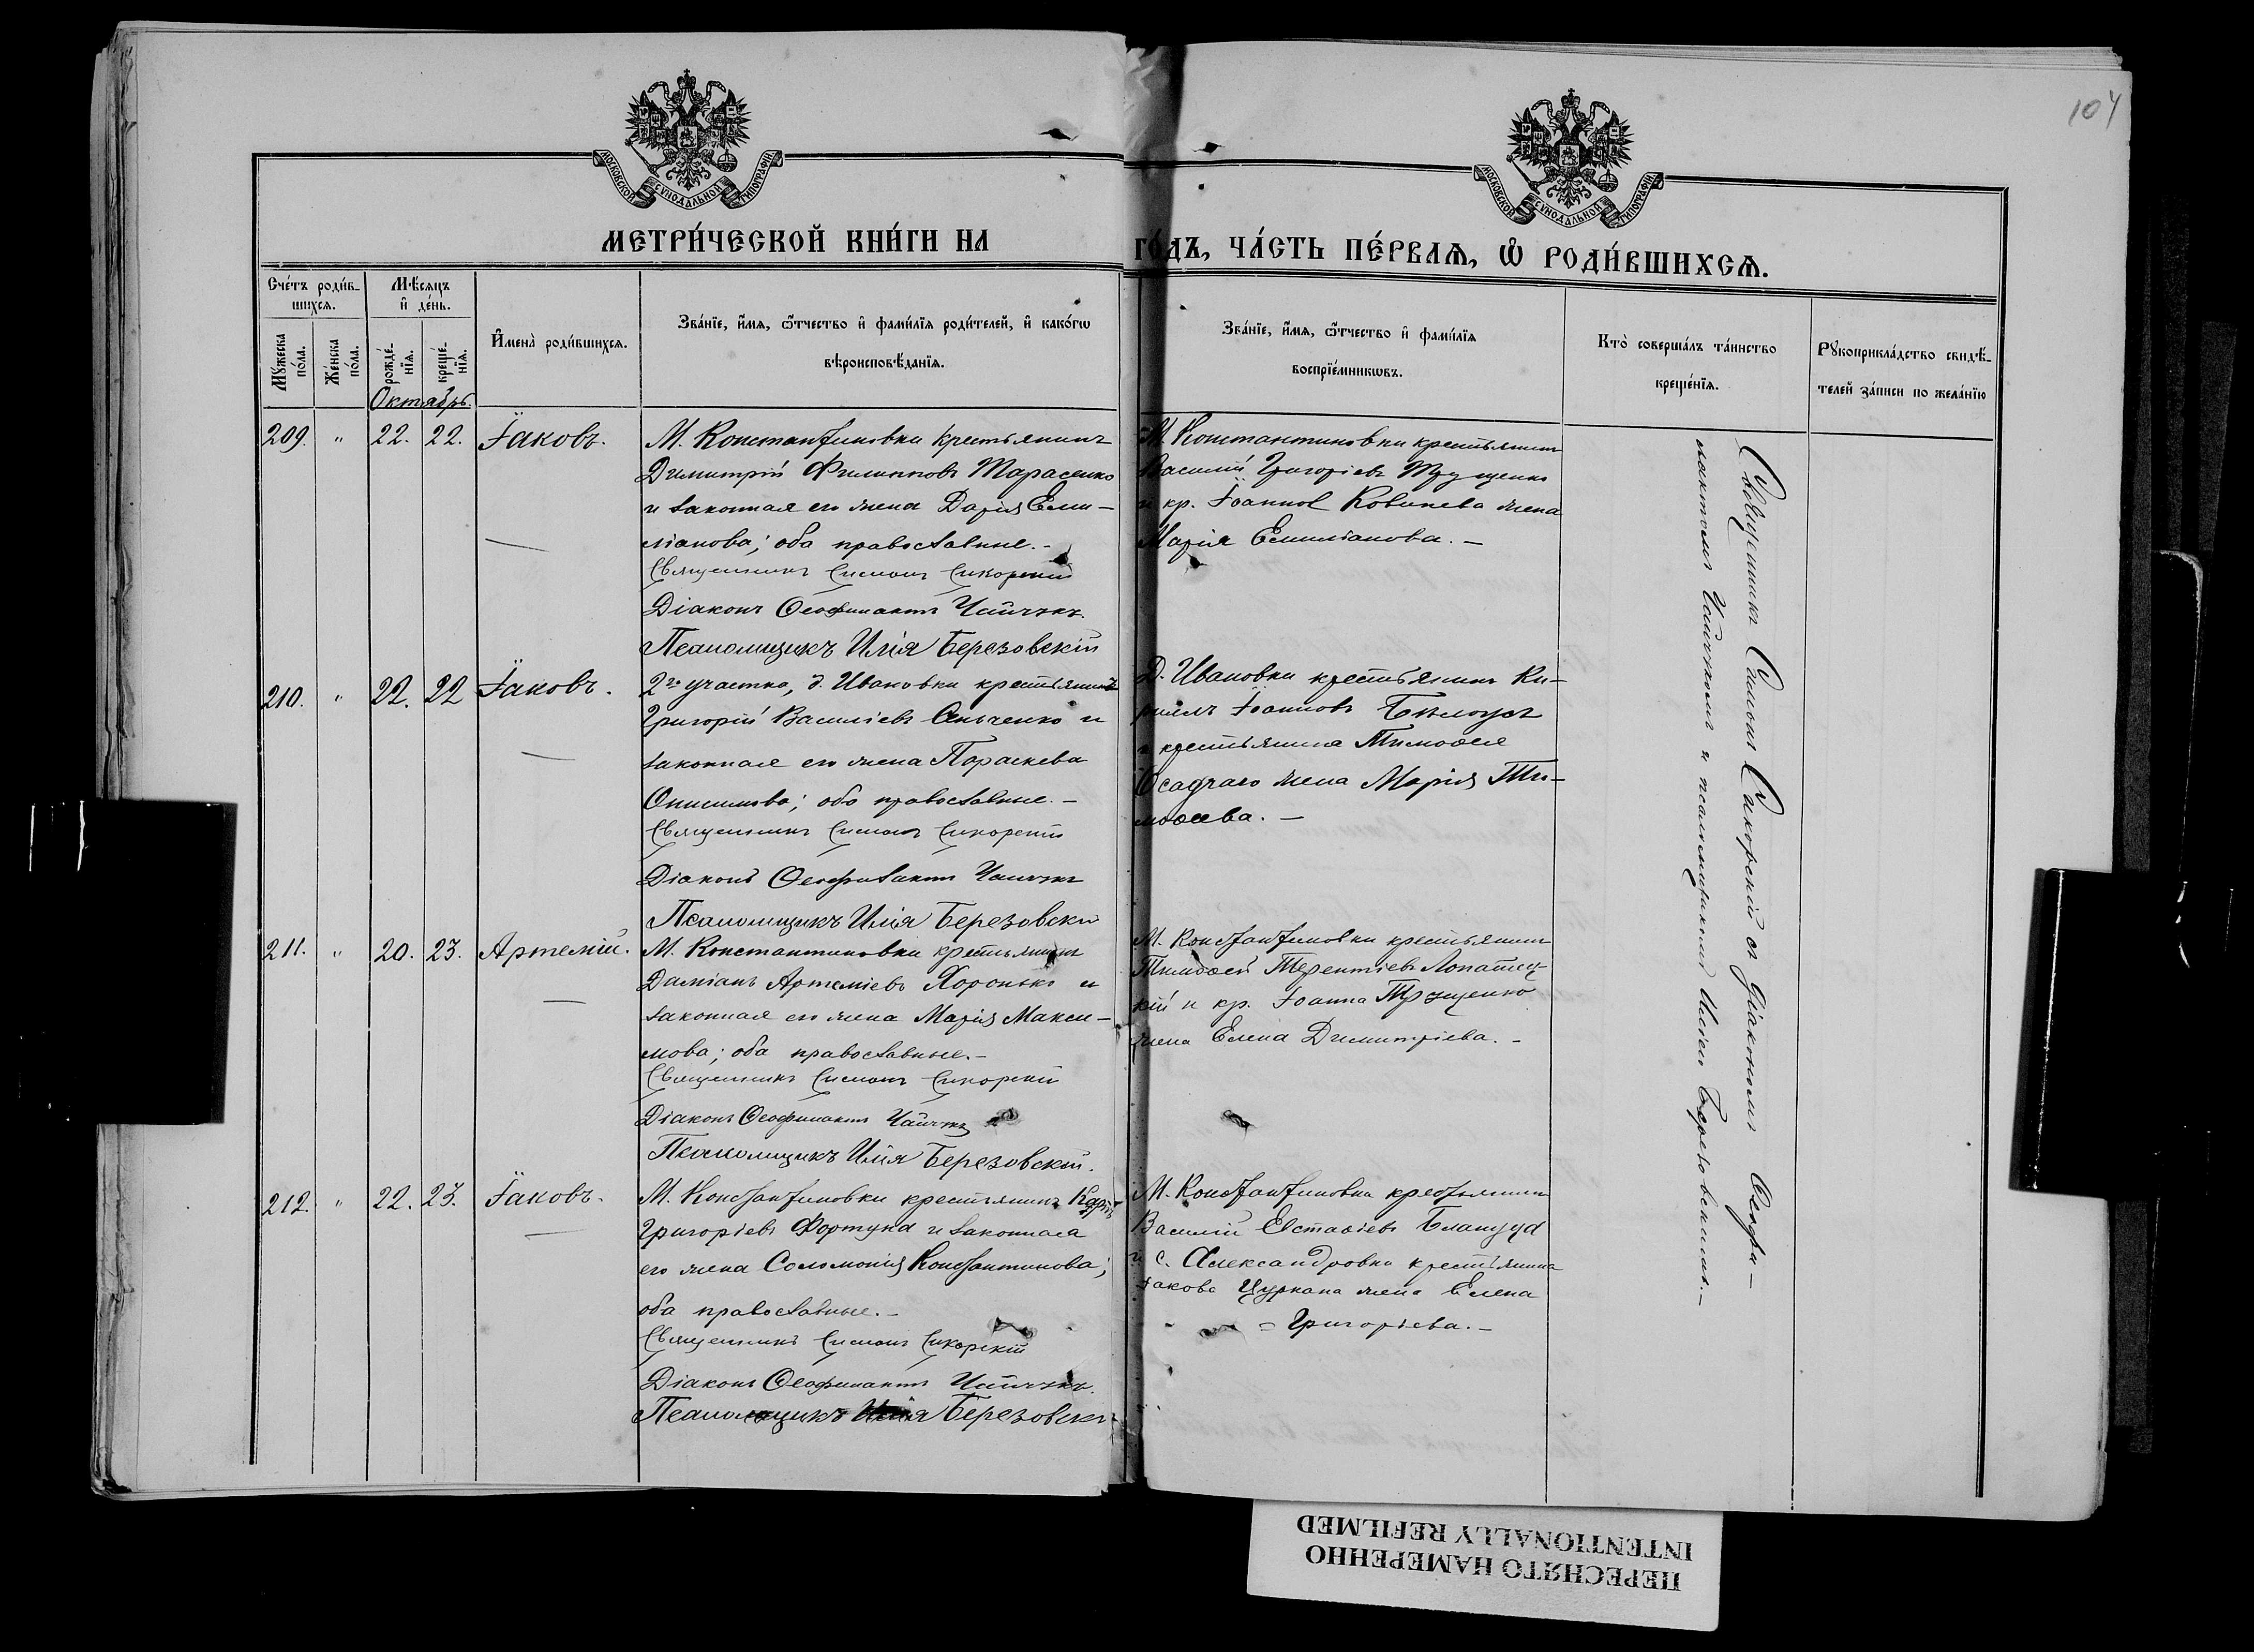 104
МОСКОВСКОЙ СѴНОДАЛЬНОЙ ТИПОГРАФІИ
МОСКОВСКОЙ СѴНОДАЛЬНОЙ ТИПОГРАФІИ
МЕТРИ́ЧЕСКОЙ КНИ́ГИ НА
ГО́ДЪ, ЧА́СТЬ ПЕ́РВАѦ, Ѡ҆ РОДИ́ВШИХСѦ.
Сче́тъ роди́в-
шихсѧ.
Мꙋ́жеска по́ла.
Же́нска по́ла.
Мѣ́сѧцъ
и҆ де́нь.
рожде́-
нїѧ.
креще́-
нїѧ.
И҆мена̀ роди́вшихсѧ.
Зва́нїе, и҆́мѧ, ѻ҆́тчество и҆ фами́лїѧ роди́телей, и҆ како́гѡ
вѣроисповѣ́данїѧ.
Зва́нїе, и҆́мѧ, ѻ҆́тчество и҆ фами́лїѧ
воспрїе́мникѡвъ.
Кто̀ соверша́лъ та́инство
креще́нїѧ.
Рꙋкоприкла́дство свидѣ́-
телей за́писи по жела́нїю
Октябрь.
209. " 22. 22. Іаковъ.
М. Константиновки крестьянинъ
Димитрій Филипповъ Тарасенко
и законная его жена Дарія Еми-
ліанова; оба православные.-
Священникъ Симонъ Сикорскій
Діаконъ Ѳеофилактъ Чайчукъ.
Псаломщикъ Илія Березовскій
М. Константиновки крестьянинъ
Василій Григоріевъ Трущенко
и кр. Іоанна Ковинева жена
Марія Емиліанова.-
210. " 22. 22 Іаковъ.
2го участка, д. Ивановки крестьянинъ
Григорій Василіевъ и
законная его жена Параскева
Онисимова; оба православные.-
Священникъ Симонъ Сикорскій
Діаконъ Ѳеофилактъ Чайчукъ
Псаломщикъ Илія Березовскій
Д. Ивановки крестьянинъ Ки-
риллъ Іоанновъ Бѣлоусъ
и крестьянина Тимоѳея
Осадчаго жена Марія Ти-
моѳеева.-
211. " 20. 23. Артемій.
М. Константиновки крестьянинъ
Даміанъ Артеміевъ Хоронько и
законная его жена Марія Макси-
мова; оба православные.-
Священникъ Симонъ Сикорскій
Діаконъ Ѳеофилактъ Чайчукъ
Псаломщикъ Илія Березовскій.
М. Константиновки крестьянинъ
Тимоѳей Терентіевъ Лопатец-
кій и кр. Іоанна Трущенко
жена Елена Димитріева.-
212. " 22. 23. Іаковъ.
М. Константиновки крестьянинъ
Григоріевъ Фортуна и законная
его жена Соломонія Константинова;
оба православные.-
Священникъ Симонъ Сикорскій
Діаконъ Ѳеофилактъ Чайчукъ.
Псаломщикъ Илія Березовскій
М. Константиновки крестьянинъ
Василій Евстаѳіевъ
и с. Александровки крестьянина
Іакова Цуркана жена Елена
= Григоріева.-
Священникъ Симонъ Сикорскій съ діакономъ Ѳеофи-
лактомъ Чайчукомъ и псаломщикомъ Иліею Березовскимъ.-
ПЕРЕСНЯТО НАМЕРЕННО
INTENTIONALLY REFILMED